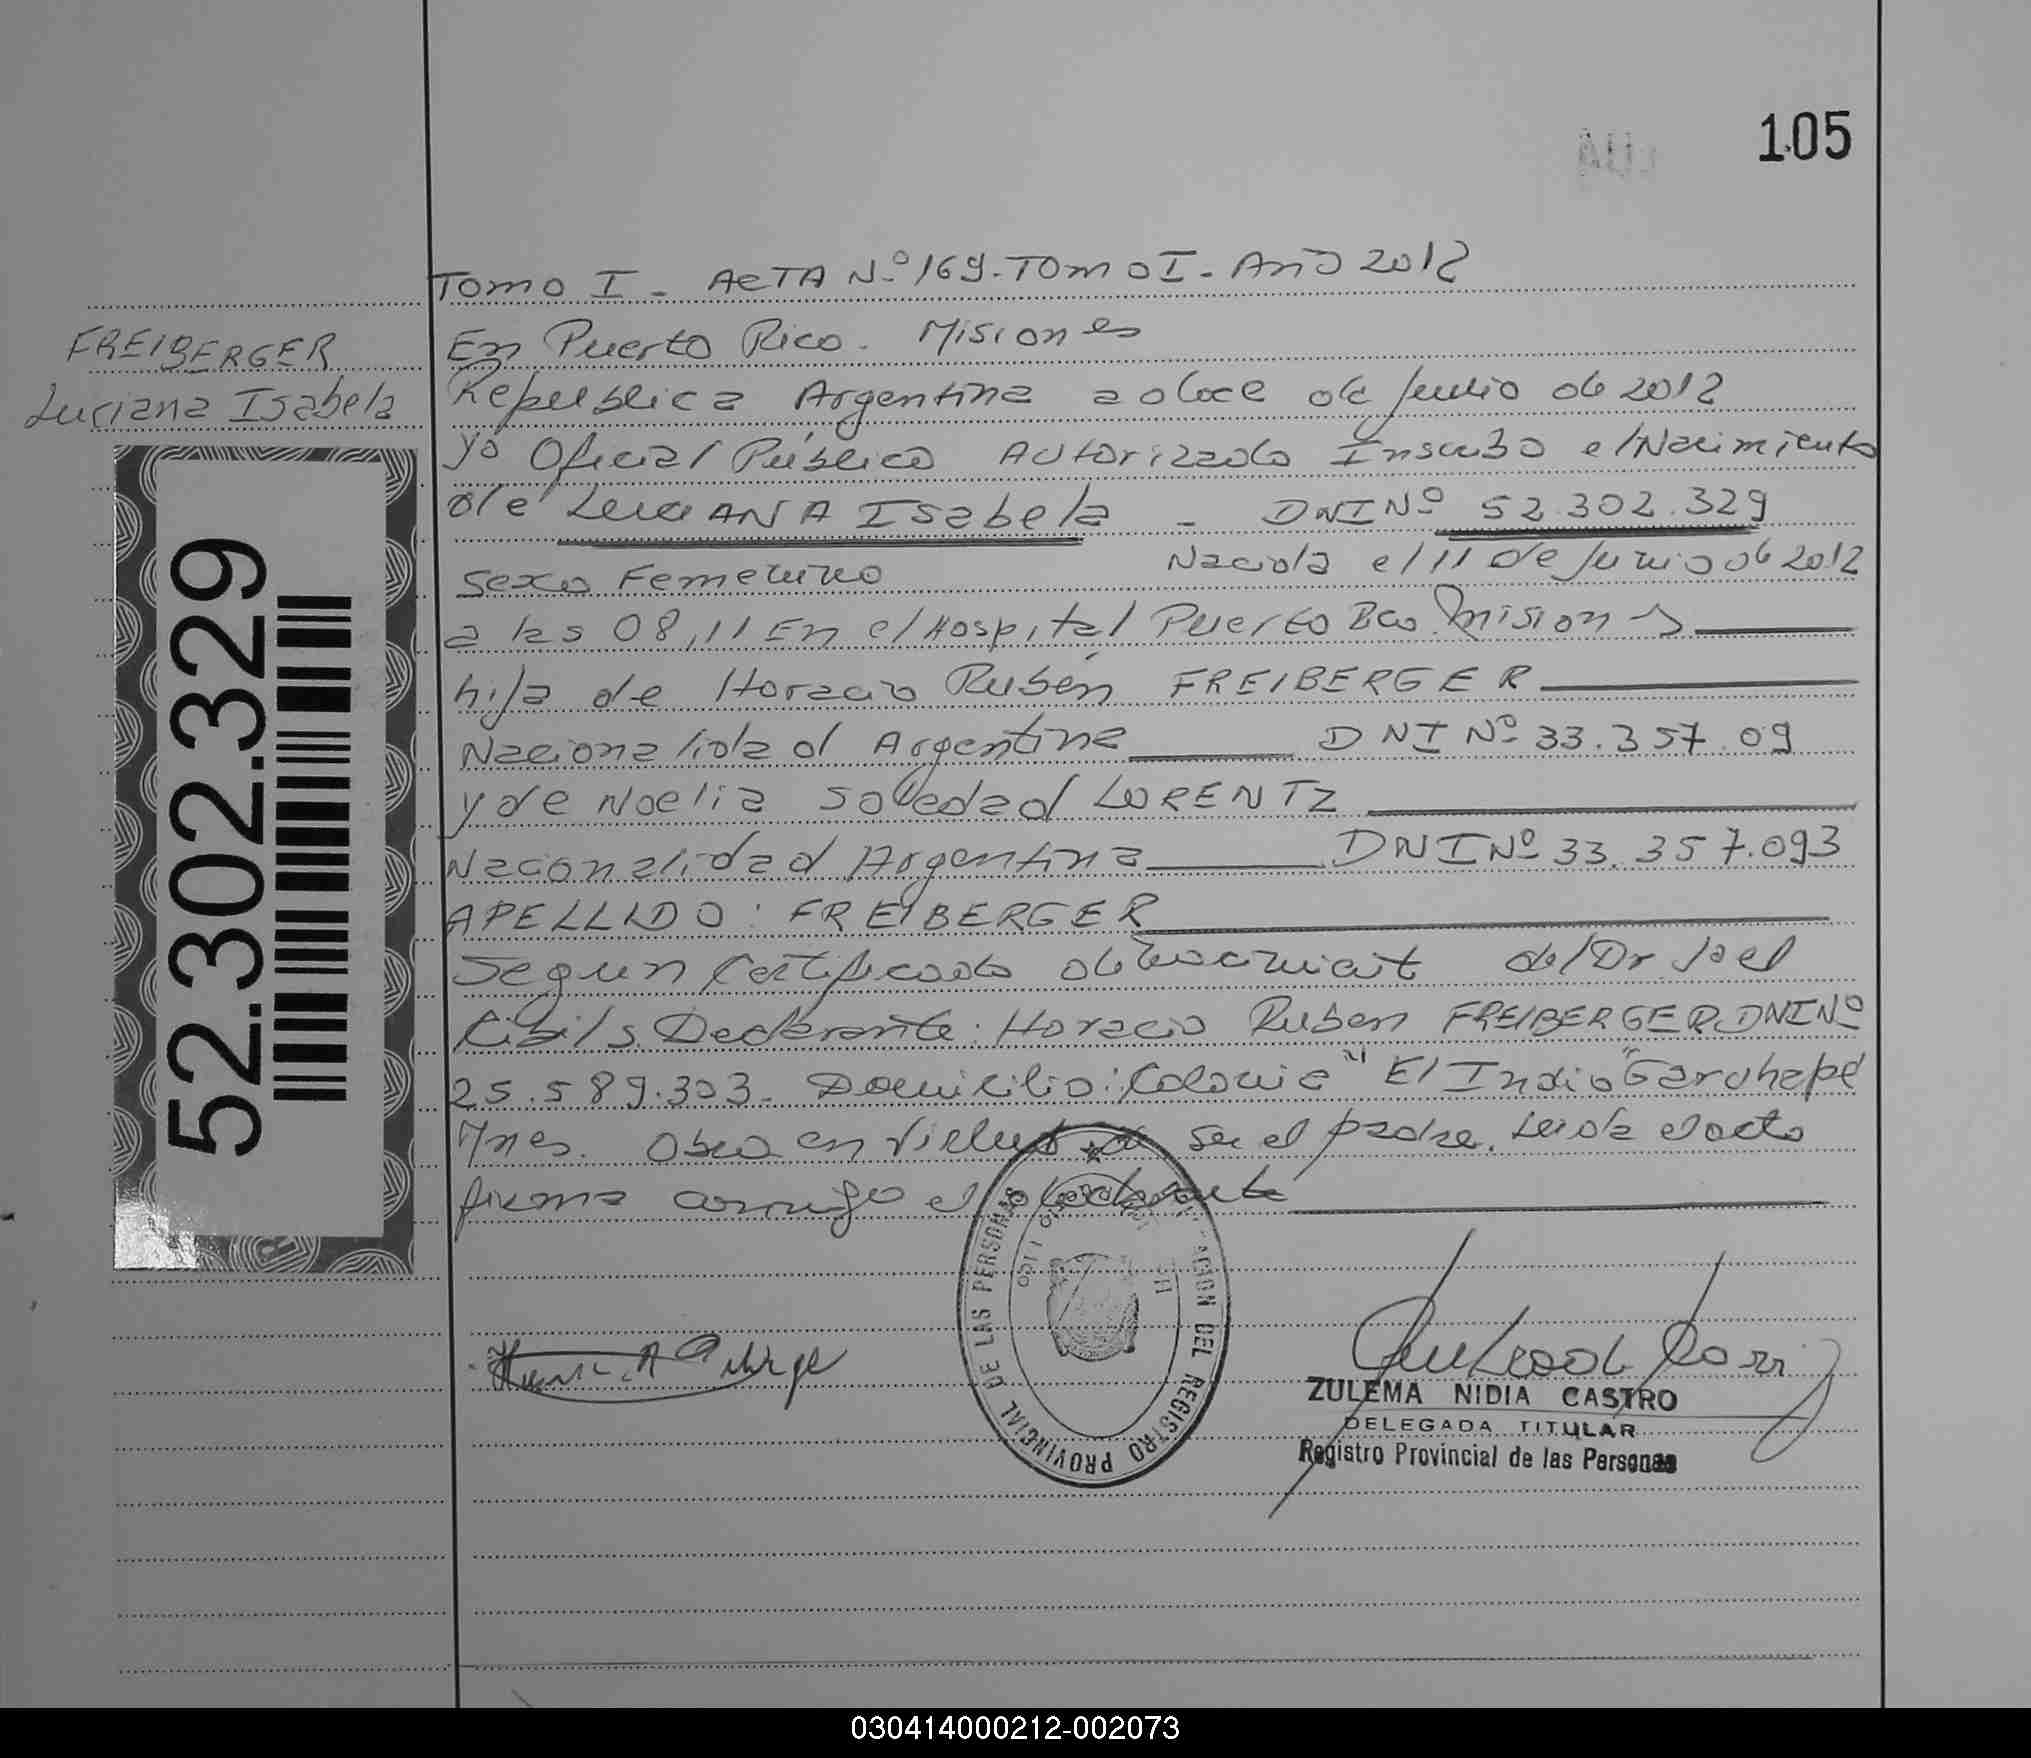 105
Tomo I - ACTA Nº 169-Tomo I- Año 2012
FREIBERGER
Luciana Isabela
En Puerto Rico. Misiones
Republica Argentina a doce de Junio de 2012
yo Oficial Público Autorizado Inscribo el Nacimiento
de Luciana Isabela - DNI Nº 52.302.329
Sexo Femenino Nacida el 11 de Junio de 2012
a las 08,11 En el Hospital Puerto Rco. Misiones
hija de Horacio Rubén FREIBERGER
Nacionalidad Argentina DNI Nº 33.357.09
y de Noelia Soledad LORENTZ
Nacionalidad Argentina DNI Nº 33.357.093
APELLIDO: FREIBERGER
Segun Certificado de del Dr. Joel
Cibils. Declarante: Horacio Ruben FREIBERGER DNI Nº
25.589.303. Domicilio: Colonia "El Indio" Garuhape
Mnes. Obra en Virtud de ser el padre. Leida el acta
firma conmigo el declarante
52.302.329
DE LAS PERSONAS
DEL REGISTRO PROVINCIAL
ZULEMA NIDIA CASTRO
DELEGADA TITULAR
Registro Provincial de las Personas
030414000212-002073